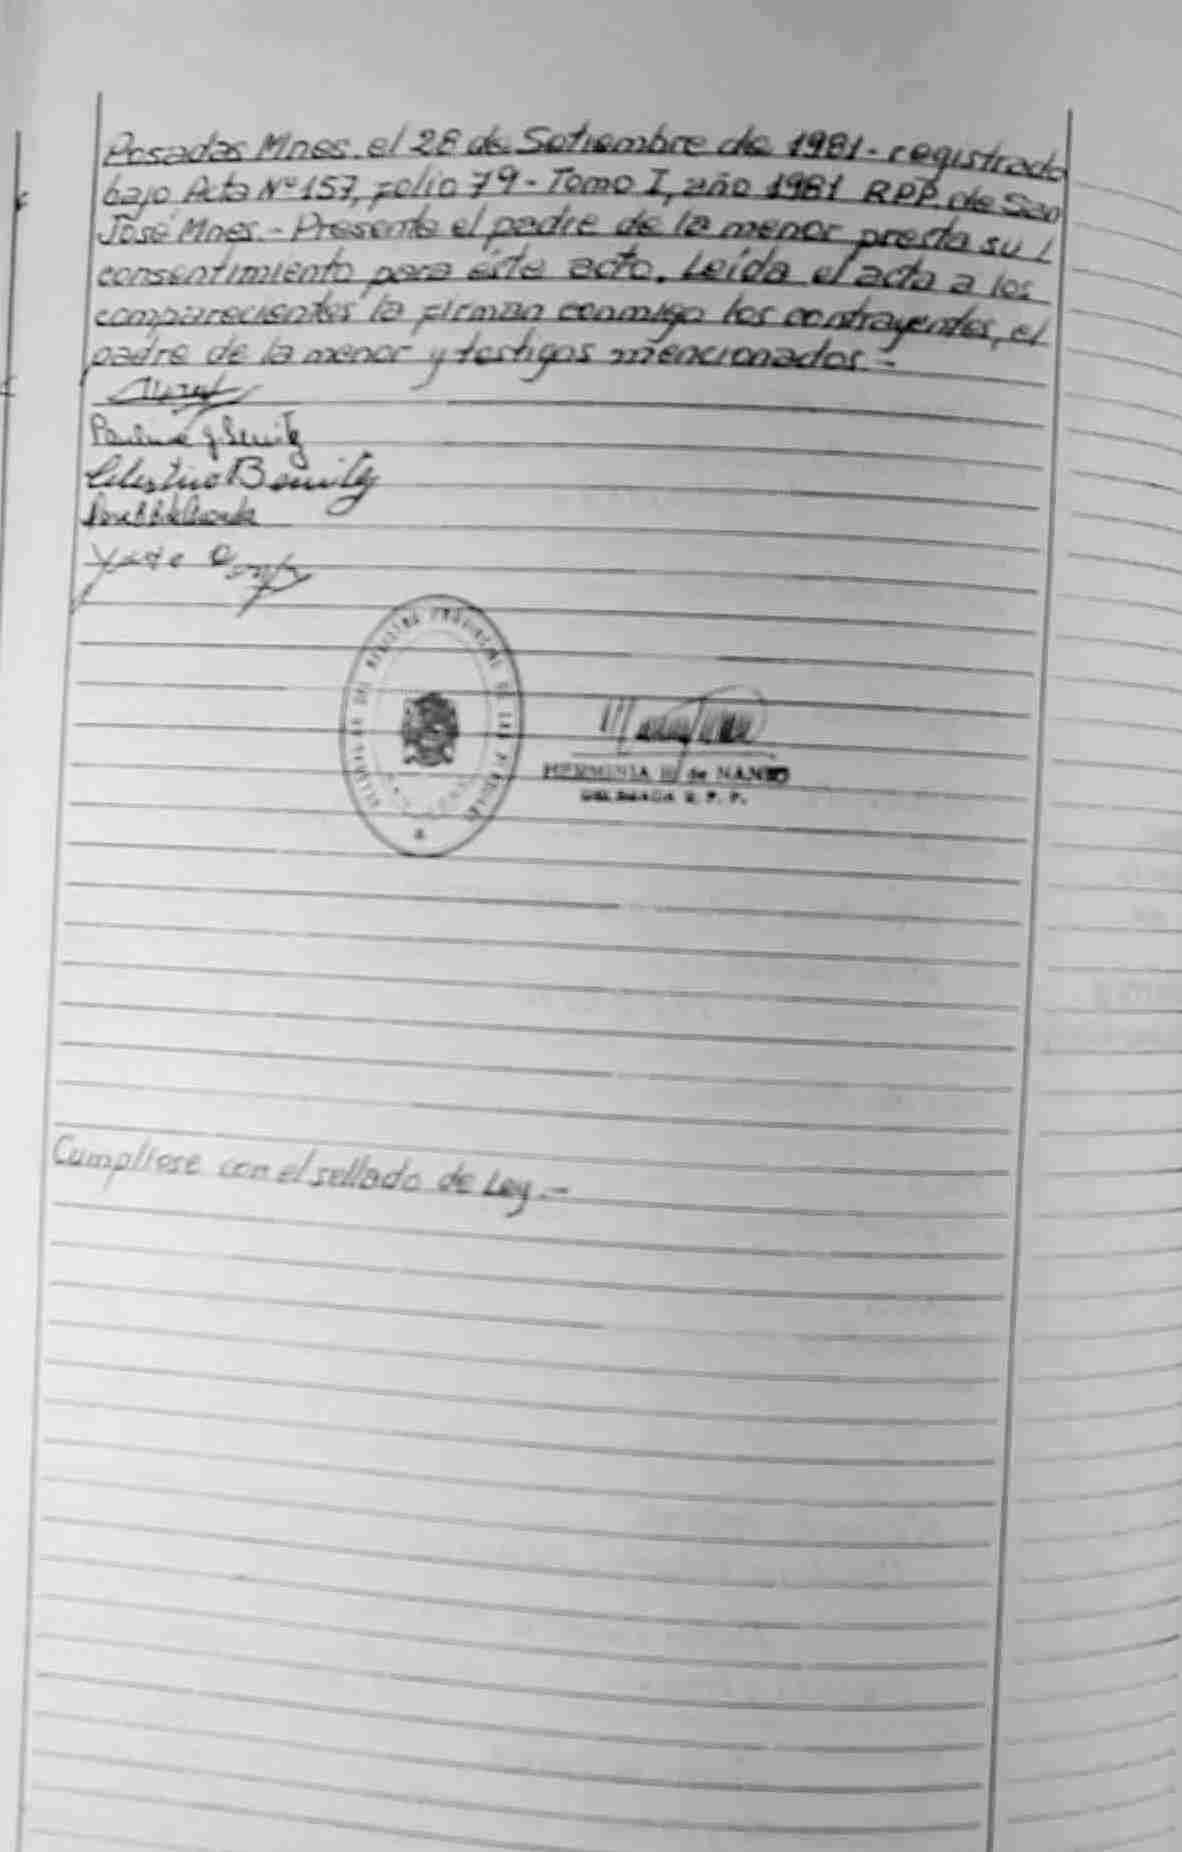 Posadas Mnes. el 28 de Setiembre de 1981 - registrada
bajo Acta Nº 157, folio 79 - Tomo I, año 1981 RPP. de San
José Mnes. - Presente el padre de la menor presta su
consentimiento para éste acto. Leída el acta a los
comparecientes la firman conmigo los contrayentes, el
padre de la menor y testigos mencionados -
Celestino Benitez
REGISTRO PROVINCIAL DE LAS PERSONAS
HERMINIA de NANNO
DELEGADA R. P. P.
Cumpliose con el sellado de Ley. -